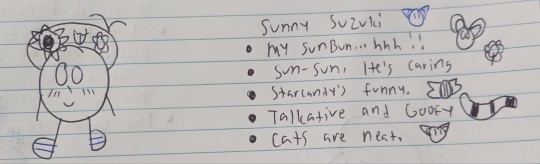 Sunny Suzuki
• My SunBun... hhh !!
• Sun-Sun, He's caring
• Starcandy's funny.
• Talkative and Goofy
• Cats are neat.